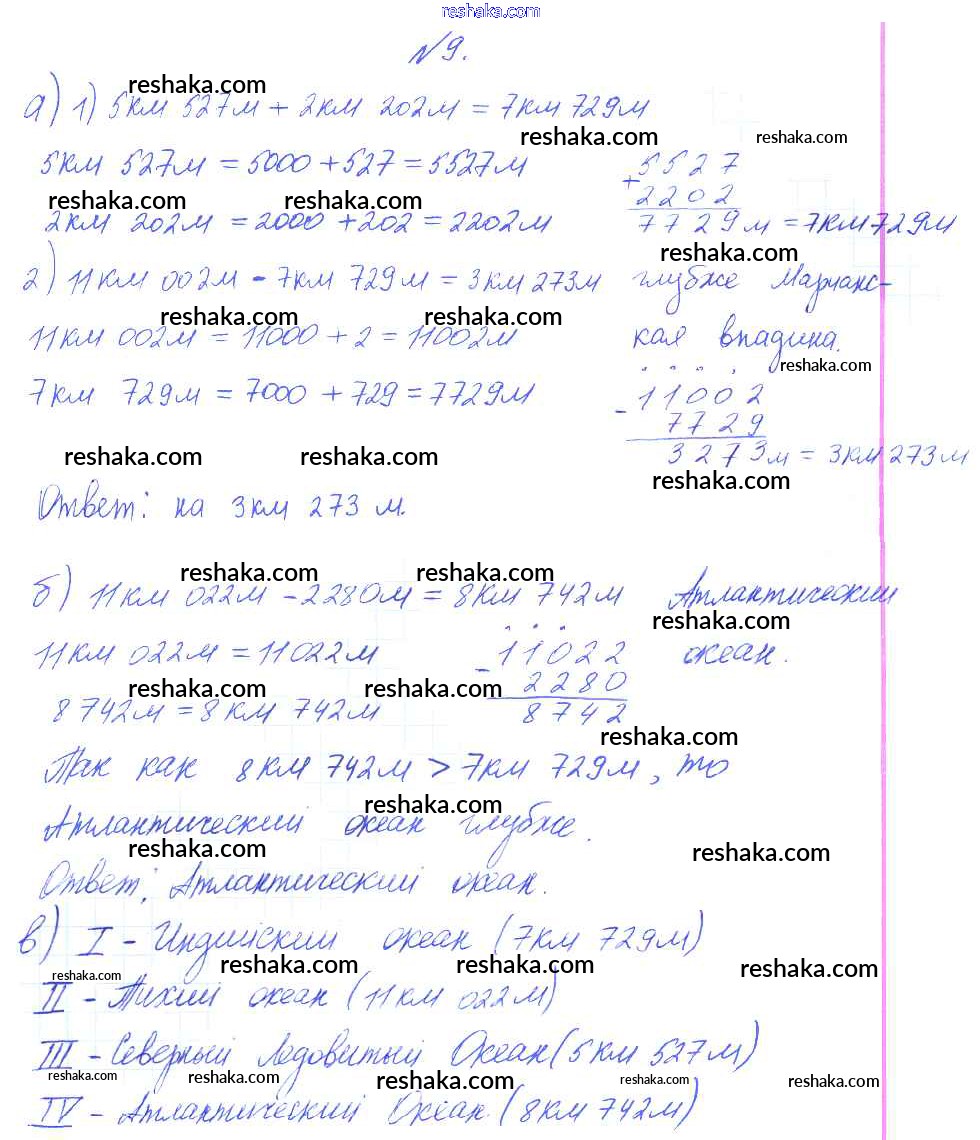 reshaka.com
№9.
reshaka.com
а) 1) 5км 527м + 2км 202м = 7км 729м
reshaka.com reshaka.com
5км 527м = 5000 + 527 = 5527м + 5527
reshaka.com reshaka.com 2202
2км 202м = 2000 + 202 = 2202м 7729м = 7км 729м
reshaka.com
2) 11км 002м - 7км 729м = 3км 273м глубже Марианс-
reshaka.com reshaka.com
11км 002м = 11000 + 2 = 11002м кая впадина.
reshaka.com
7км 729м = 7000 + 729 = 7729м - 11002
7729
reshaka.com reshaka.com 3273м = 3км 273м
reshaka.com
Ответ: на 3км 273 м.
reshaka.com reshaka.com
б) 11км 022м - 2280м = 8км 742м Атлантический
reshaka.com
11км 022м = 11022м - 11022 океан.
reshaka.com reshaka.com 2280
8742м = 8км 742м 8742
reshaka.com
Так как 8км 742м > 7км 729м, то
reshaka.com
Атлантический океан глубже.
reshaka.com reshaka.com
Ответ: Атлантический океан.
в) I - Индийский океан (7км 729м)
reshaka.com reshaka.com reshaka.com reshaka.com
II - Тихий океан (11км 022м)
III - Северный Ледовитый Океан (5км 527м)
reshaka.com reshaka.com reshaka.com reshaka.com reshaka.com
IV - Атлантический Океан (8км 742м)